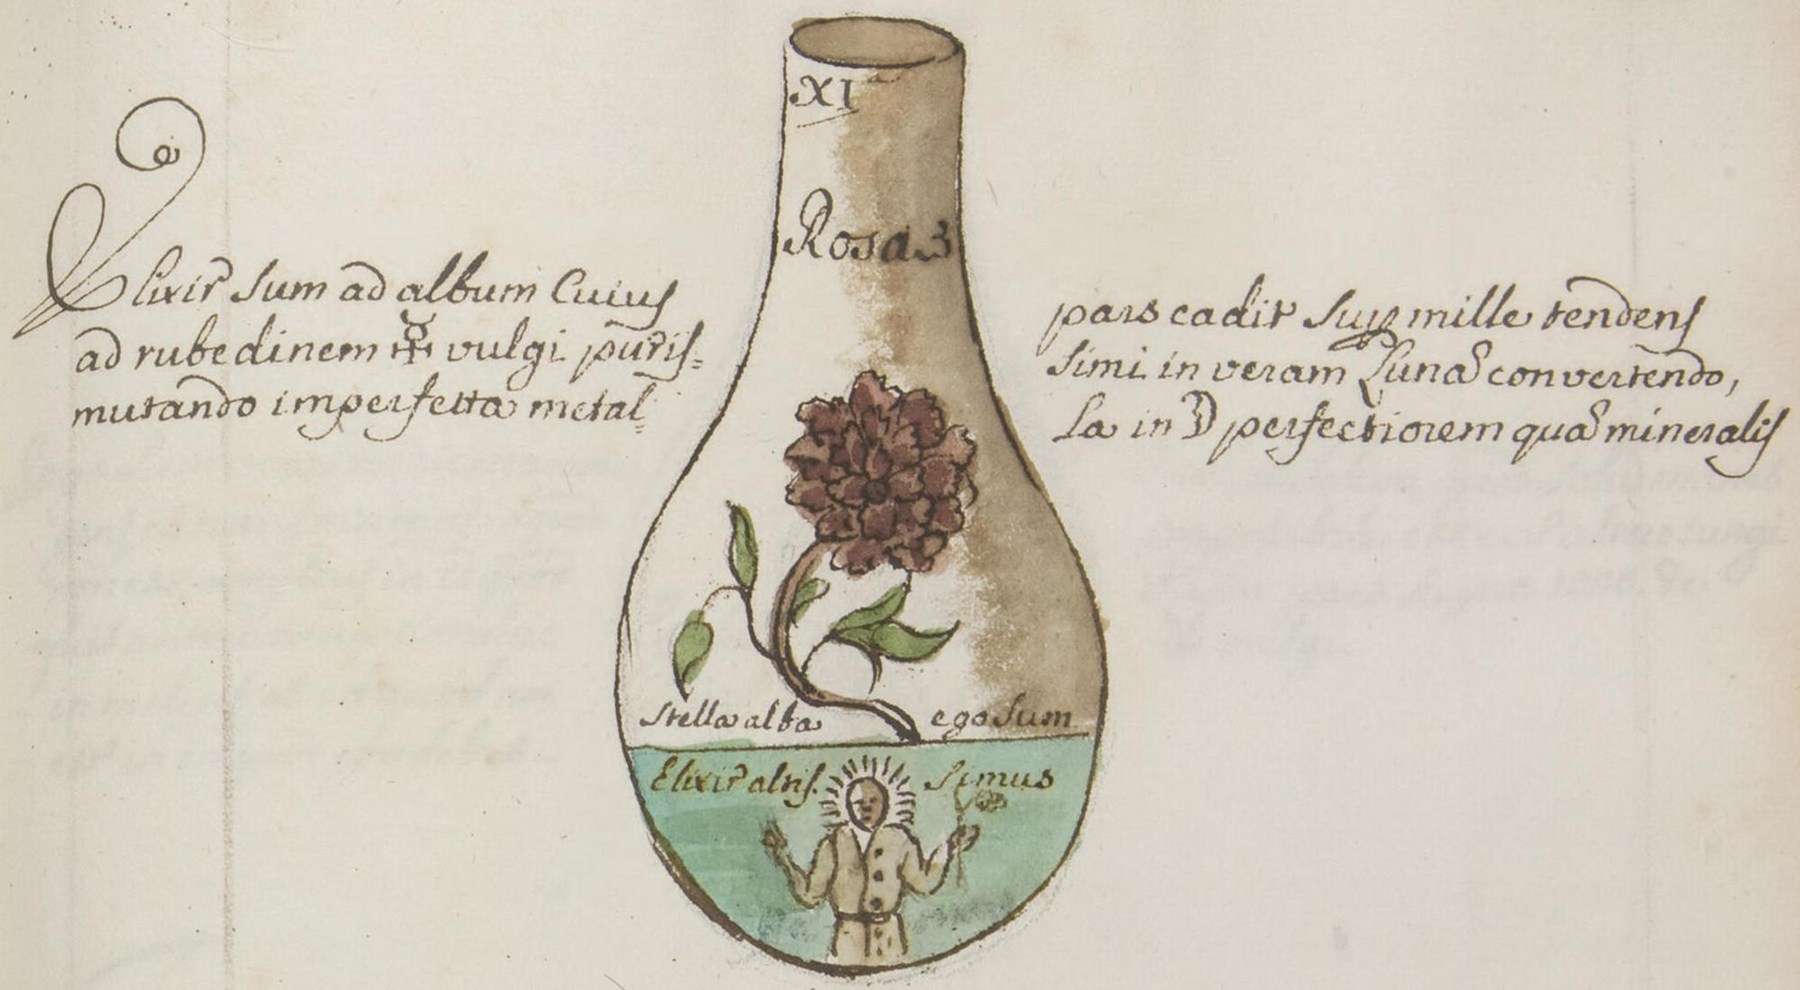 XI
Rosa 3
Elixir sum ad album Cuius pars cadit sup mille tendens
ad rubedinem ☿ vulgi puris= simi in veram Lunã convertendo,
mutando imperfecta metal= la in ☽ perfectiorem quã mineralis
stella alba ego sum
Elixir altis. simus